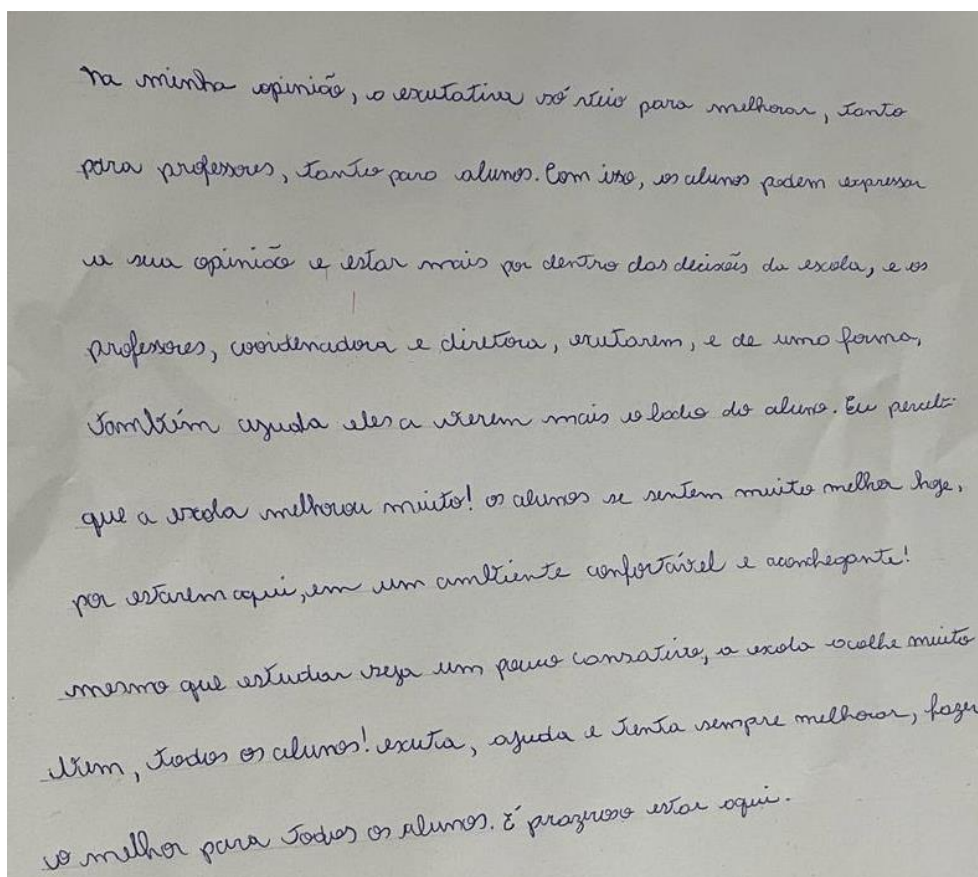 na minha opinião, o escutativa só veio para melhorar, tanto
para professores, tanto para alunos. Com isso, os alunos podem expressar
a sua opinião e estar mais por dentro das decisões da escola, e os
professores, coordenadora e diretora, escutarem, e de uma forma,
também ajuda eles a verem mais o lado do aluno. Eu percebi
que a escola melhorou muito! os alunos se sentem muito melhor hoje,
por estarem aqui, em um ambiente confortável e aconchegante!
mesmo que estudar seja um pouco cansativo, a escola acolhe muito
bem, todos os alunos! escuta, ajuda e tenta sempre melhorar, fazer
o melhor para todos os alunos. É prazeroso estar aqui.